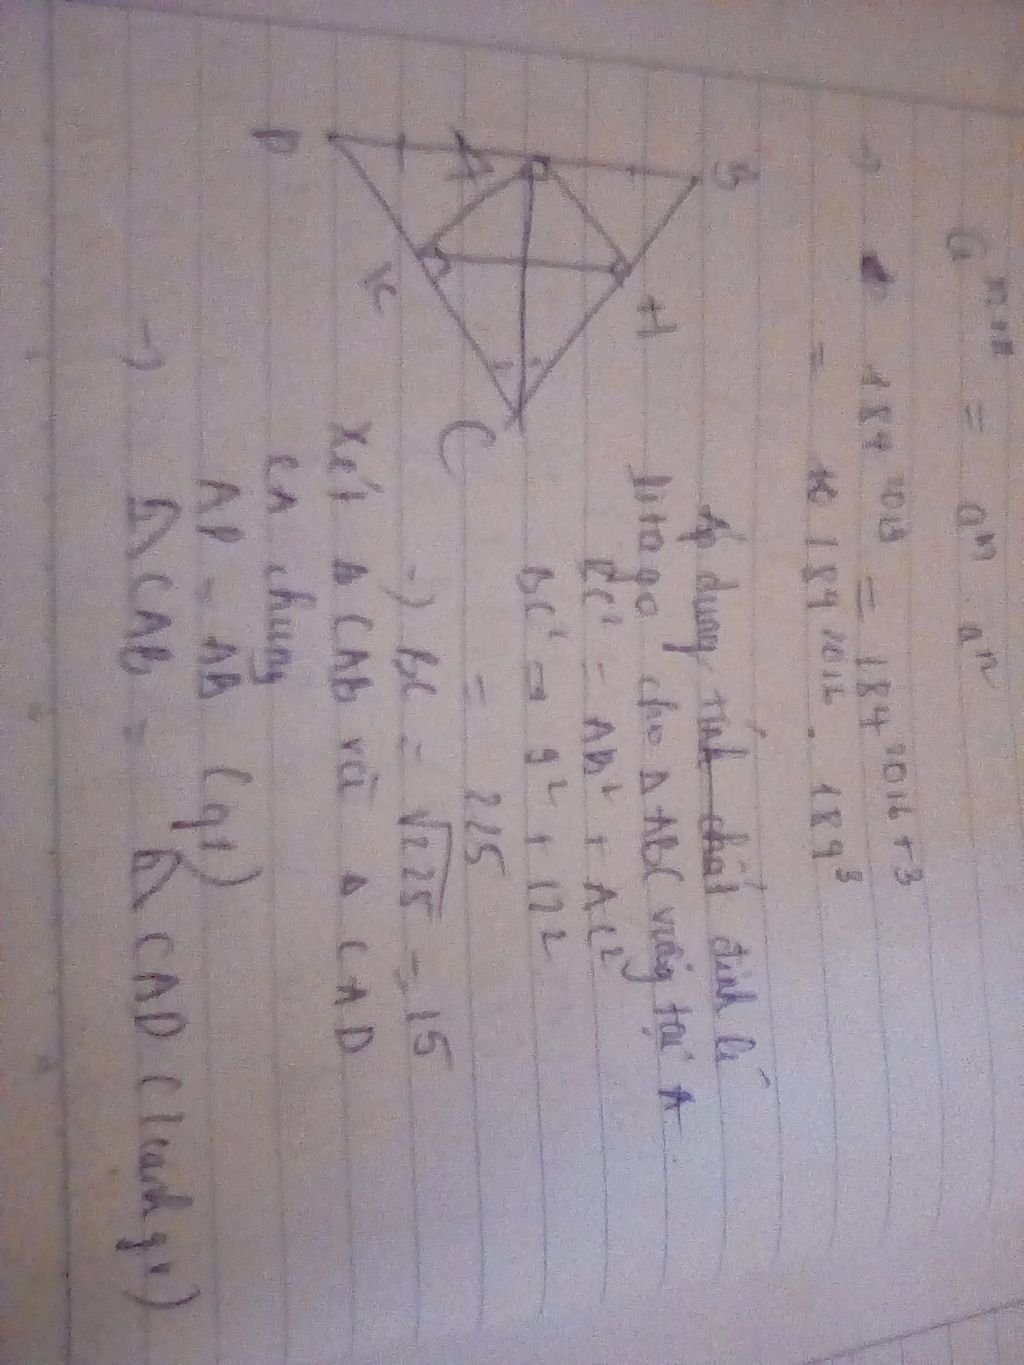 a^{m+n} = a^m . a^n
→ 184^{2019} = 184^{2016+3}
= 184^{2016} . 184^3
B
H
A
K
D
C
Áp dụng tính chất định lí
pitago cho Δ ABC vuông tại A
BC² = AB² + AC²
BC² = 9² + 12²
= 225
→ BC = √225 = 15
Xét Δ CAB và Δ CAD
CA chung
AD = AB (gt)
→ Δ CAB = Δ CAD (1 cạnh gv)